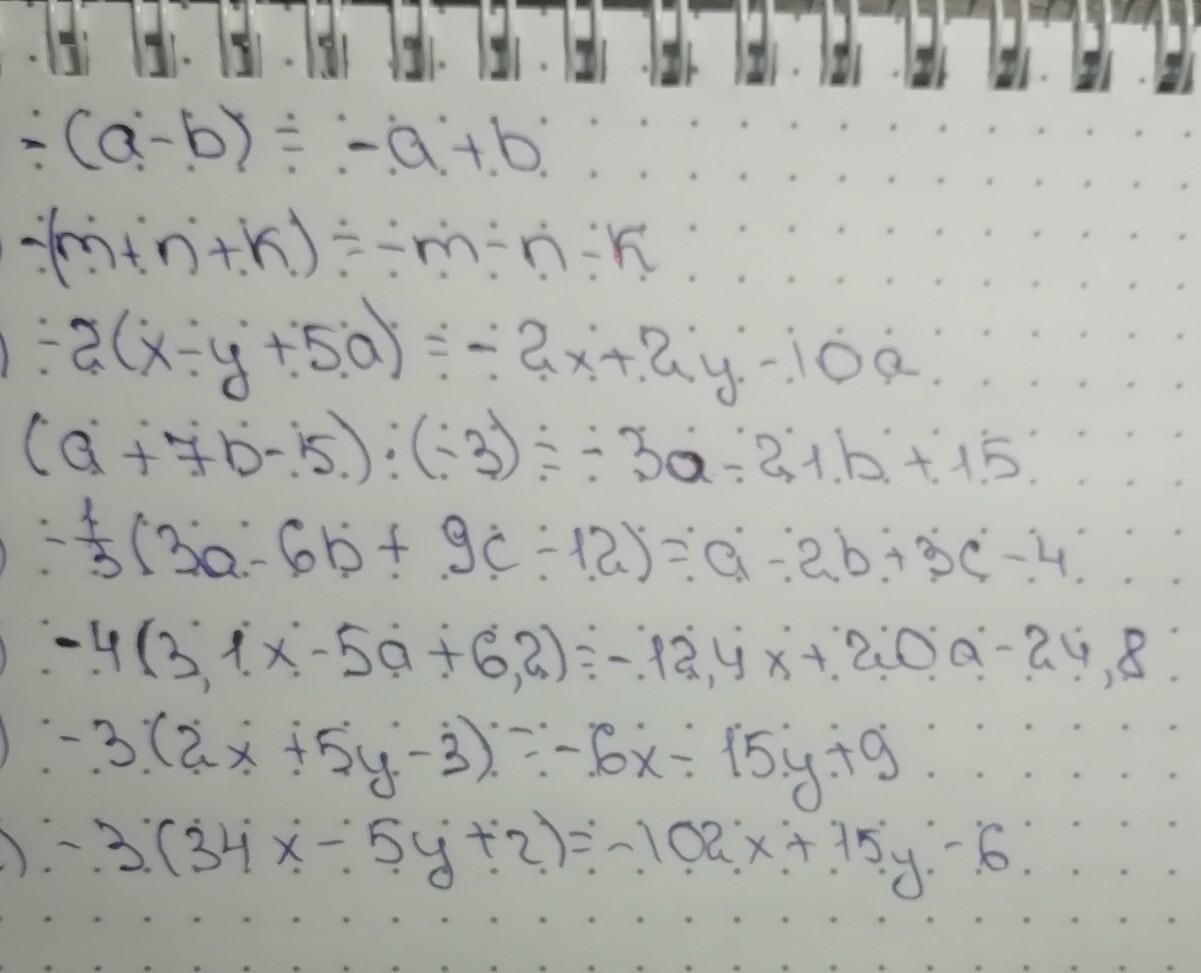 -(a-b) = -a+b
-(m+n+k) = -m-n-k
) -2(x-y+5a) = -2x+2y-10a
(a+7b-5)·(-3) = -3a-21b+15
) -1/3(3a-6b+9c-12) = a-2b+3c-4
) -4(3,1x-5a+6,2) = -12,4x+20a-24,8
) -3(2x+5y-3) = -6x-15y+9
) -3(34x-5y+2) = -102x+15y-6